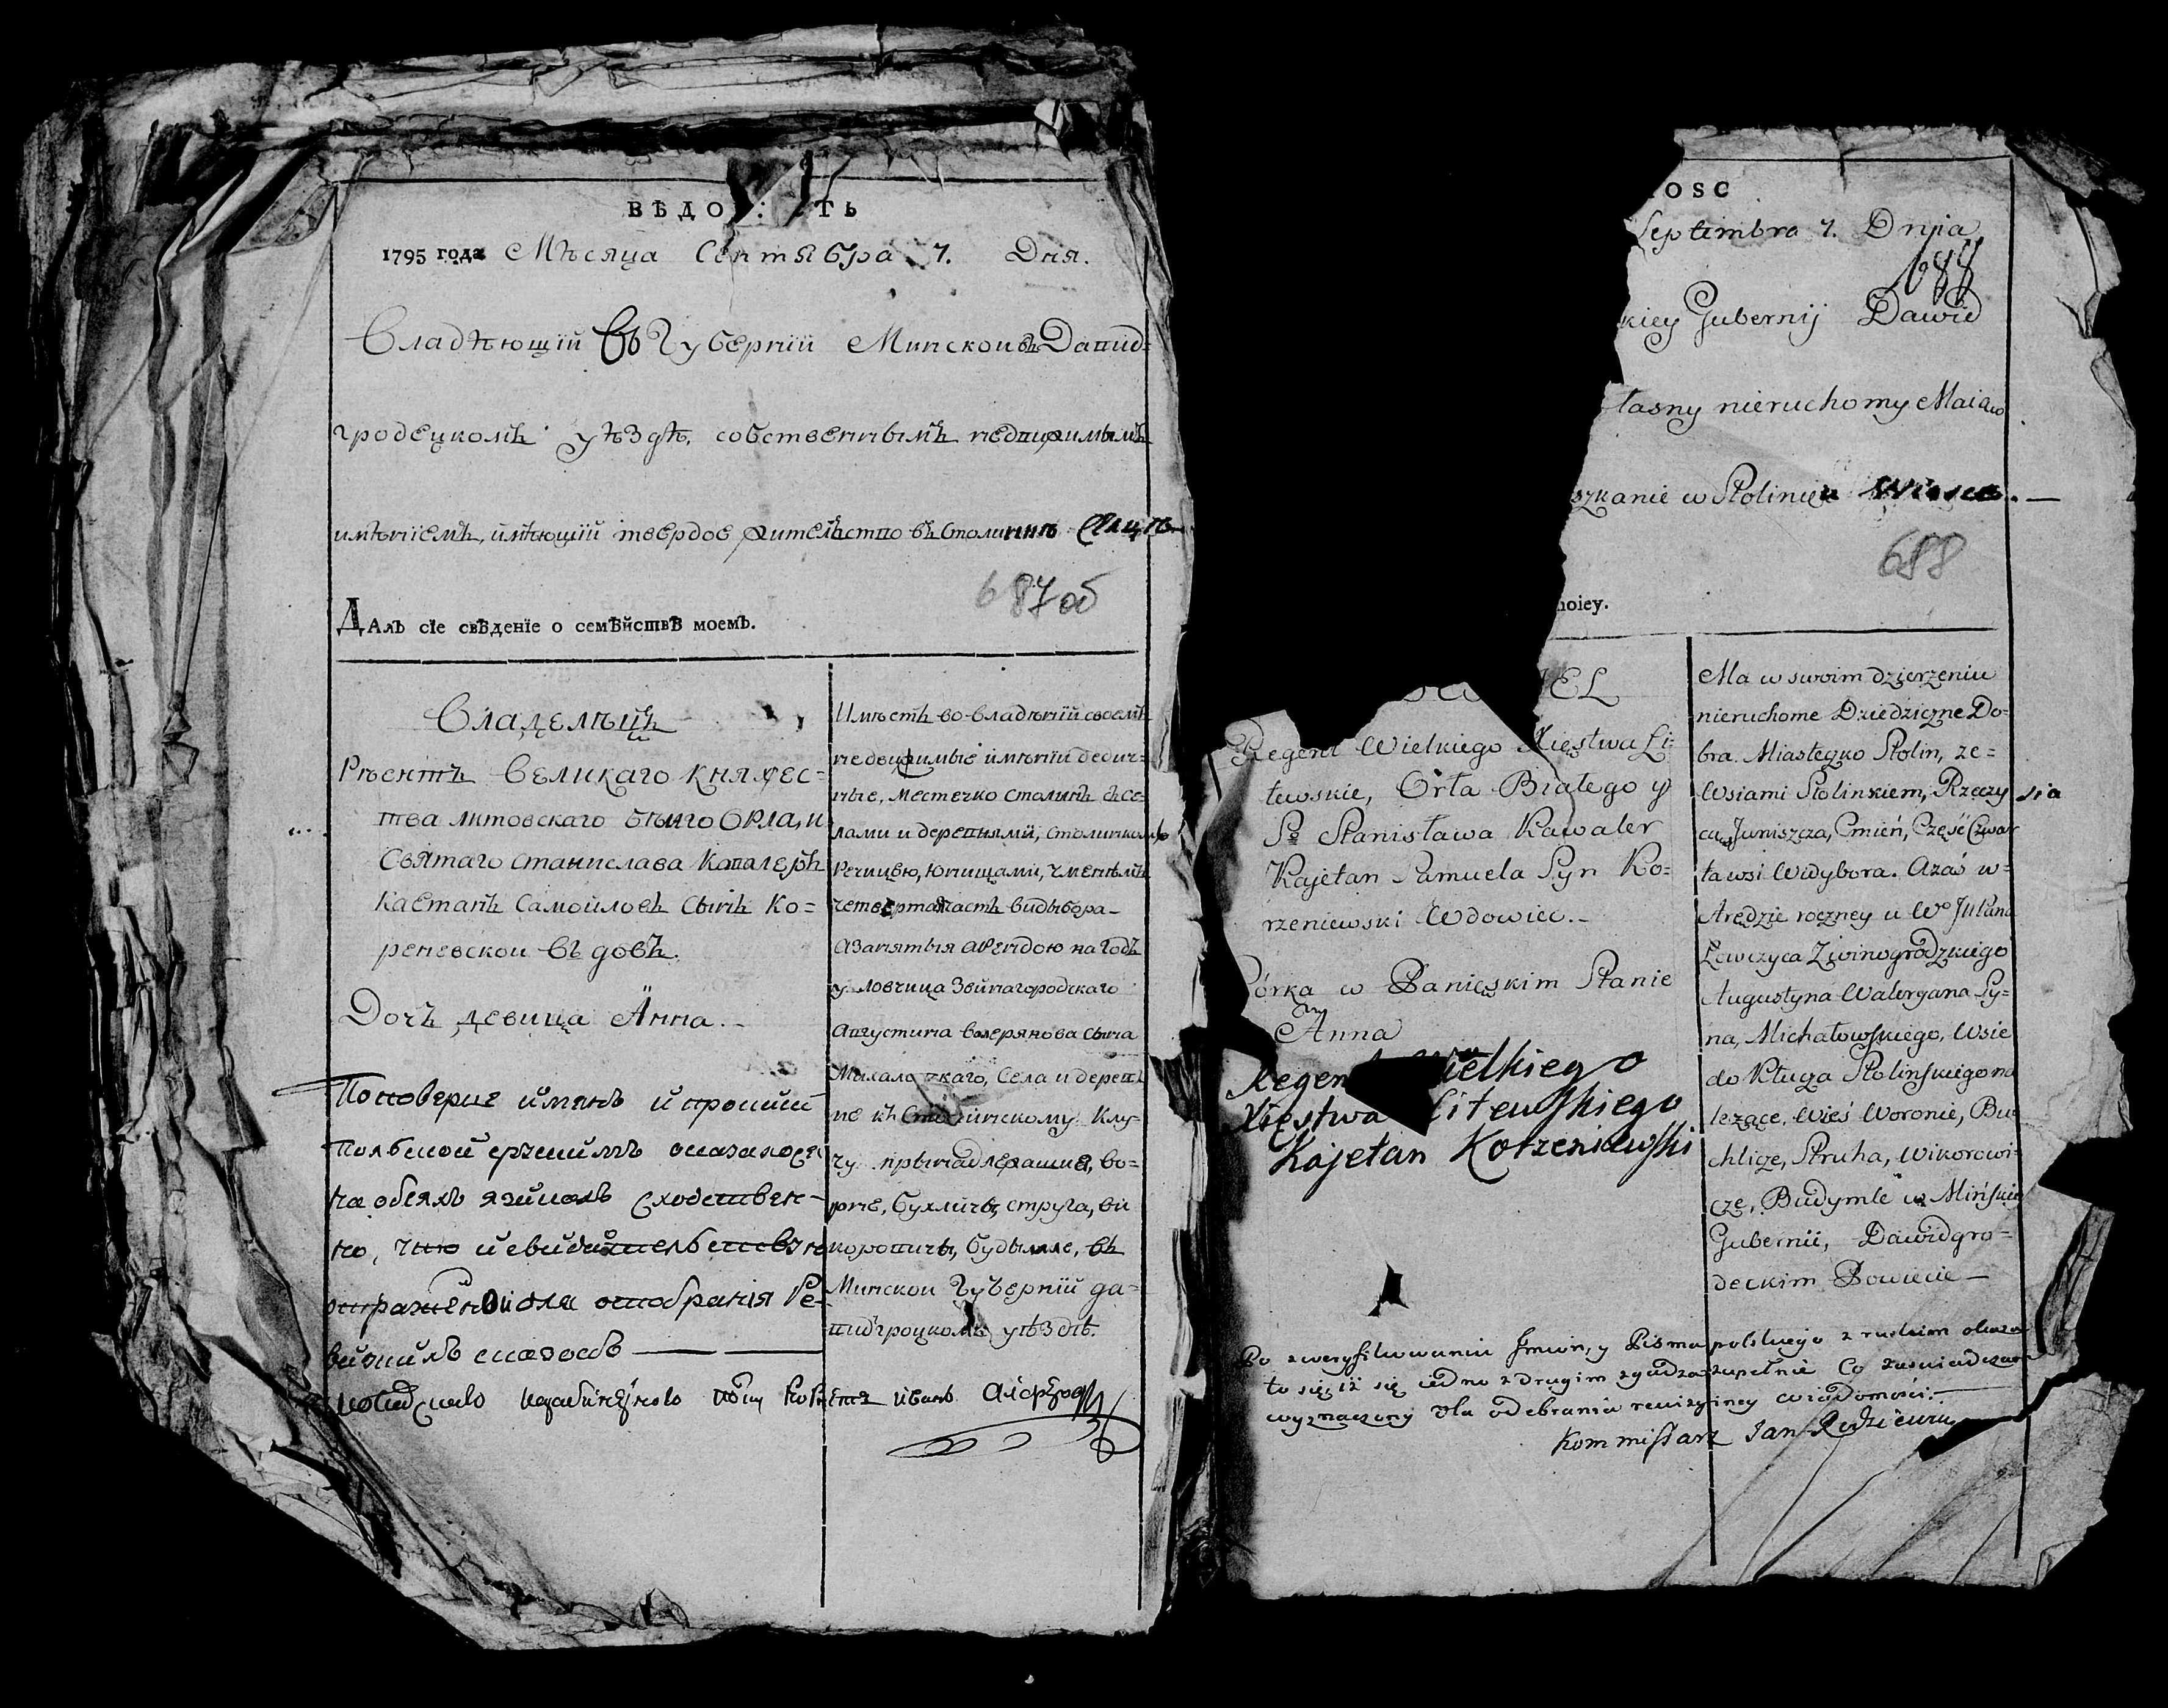 ВѢДО ТЬ
1795 года Мѣсяца Сентября 7. Дня.
Владѣющій Въ Губерніи Минской въ Давид=
гродецкомъ уѣздѣ, собственнымъ недвижимымъ
имѣніемъ, имѣющій твердое жительство въ Столинѣ
687об
Далъ сіе свѣденіе о семѣйствѣ моемъ.
Владелецъ
Регентъ Великаго Княжес=
тва Литовскаго Бѣлаго Орла, и
Святаго Станислава Кавалеръ
Каетанъ Самойловъ Сынъ Ко=
реневской Вдовъ.
Дочъ девица Анна.
Поповерке имянъ и
Польской оказалось
на обеихъ языкахъ сходствен-
но, что и свидетельствую
для отобранія Ре-
Иванъ
Имѣетъ во владѣніи своемъ
недвижимые имѣніи дедич=
ные, местечко Столинъ съ се=
лами и деревнями, Столинкомъ
Речицею, Юнищами,
четвертая часть Видыбора
а занятыя арендою на годъ
у Ловчица Звинагородскаго
Августина Валерянова Сына
Михало каго, Села и дерев
не къ Столинскому Клу=
чу принадлежащие, Во=
роне, Бухличи, Струга, Ви
коровичи, Будымле, въ
Минской Губерніи Да=
видгроцкомъ уѣздѣ.
OSC
Septembra 7. Dnia
688
kiey Gubernij Dawid
łasny nieruchomy Maią
szkanie w Stolinie
688
moiey.
EL
Regent Wielkiego Xięstwa Li=
tewskie, Orła Białego y
S. Stanisława Kawaler
Kajetan Samuela Syn Ko=
rzeniewski Wdowiec.
Córka w Panieskim Stanie
Anna
Regent Wielkiego
Xięstwa Litewskiego
Kajetan Korzeniewski
Ma w swoim dzierzeniu
nieruchome Dziedziczne Do=
bra. Miastegko Stolin, ze=
Wsiami Stolinkiem, Rzeczy
cą, Juniszcza, Cmień, Część Czwar
ta wsi Widybora. Azaś w=
Arędzie roczney u Wo Jm Pana
Łowczyca Zwinogrodzkiego
Augustyna Waleryana Sy=
na, Michałowskiego, Wsie
do Klucza Stolinskiego na
leżące, Wieś Woronie, Bu
chlicze, Struha, Wikorowi=
cze, Budymle w Mińskiey
Gubernii, Dawidgro=
deckim Powiecie
Po zweryfikowaniu Jmion, y Pisma polskiego z ruskim okaza
to się, iż się iedno z drugim zgadza zupełnie Co zaświadczam
wyznaczony dla odebrania rewizyiney wiadomości.
Kommissarz Jan